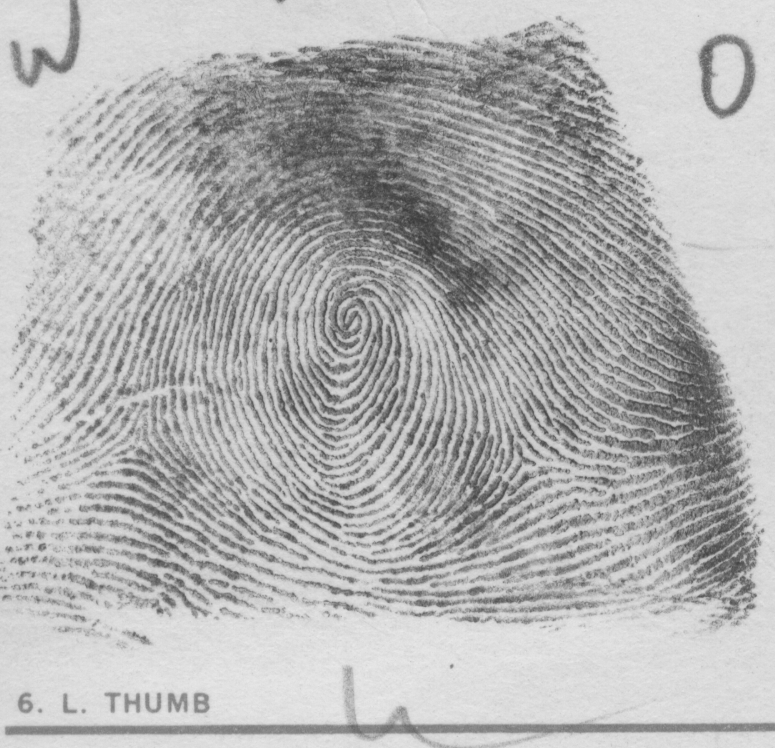 W
O
6. L. THUMB